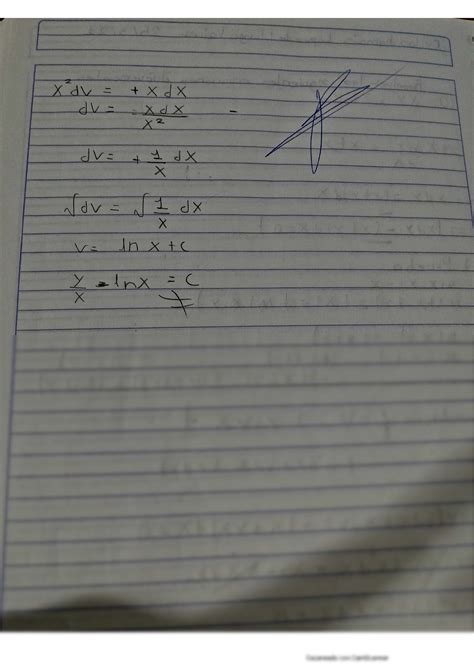 x² dv = + x dx
dv = x dx / x²
dv = + 1/x dx
∫dv = ∫ 1/x dx
v = ln x + c
y/x - ln x = C
Escaneado con CamScanner